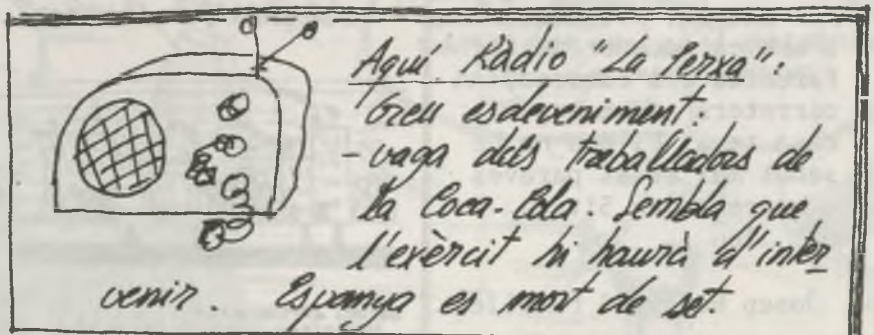 Aquí Ràdio "La Perxa":
Greu esdeveniment:
- vaga dels treballadors de
la Coca-Cola. Sembla que
l'exèrcit hi haurà d'inter
venir. Espanya es mort de set.